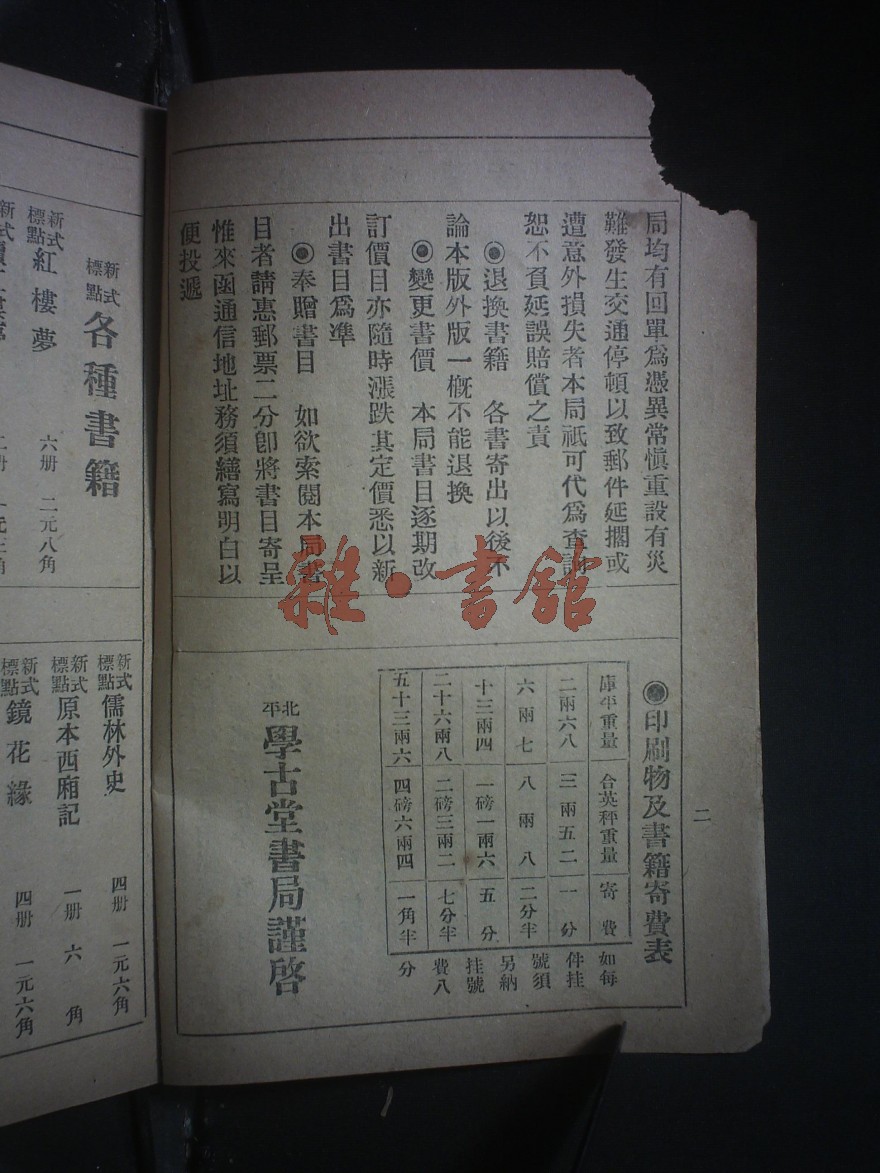 局均有回單爲憑異常愼重設有災
難發生交通停頓以致郵件延擱或
遭意外損失者本局祇可代爲查詢
恕不負延誤賠償之責
◉退換書籍 各書寄出以後不
論本版外版一概不能退換
◉變更書價 本局書目逐期改
訂價目亦隨時漲跌其定價悉以新
出書目爲準
◉奉贈書目 如欲索閱本局書
目者請惠郵票二分卽將書目寄呈
惟來函通信地址務須繕寫明白以
便投遞
◉印刷物及書籍寄費表
庫平重量 合英秤重量 寄費
二兩六八 三兩五二 一分
六兩七 八兩八 二分半
十三兩四 一磅一兩六 五分
二十六兩八 二磅三兩二 七分半
五十三兩六 四磅六兩四 一角半
如每
件挂
號須
另納
挂號
費八
分
北平 學古堂書局謹啓
二
新式標點 各種書籍
新式標點 紅樓夢 六册 二元八角
新式標點 儒林外史 四册 一元六角
新式標點 原本西廂記 一册 六角
新式標點 鏡花緣 四册 一元六角
雜·書館